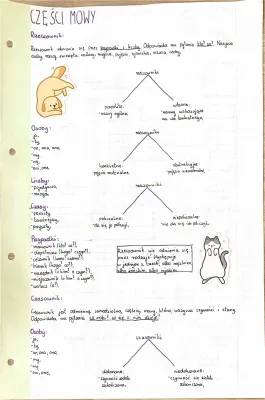 CZĘŚCI MOWY
Rzeczownik:
Rzeczownik odmienia się przez przypadki i liczby. Odpowiada na pytania kto? co? Nazywa
osoby, rzeczy, zwierzęta, rośliny
rzeczowniki
pospolite:
-nazwy ogólne
własne:
-nazwy wskazujące
na coś konkretnego
Osoby:
-ja,
-ty,
-on, ona, ono
-my,
-wy,
-oni, one,
rzeczowniki
konkretne:
-pojęcia materialne
abstrakcyjne:
-pojęcia niematerialne
Liczby:
-pojedyncza,
-mnoga,
rzeczowniki
policzalne:
-da się je policzyć,
niepoliczalne:
-nie da się ich policzyć,
Czasy:
-przeszły,
-teraźniejszy,
-przyszły,
Przypadki:
-mianownik (kto? co?),
-dopełniacz (kogo? czego?),
-celownik (komu? czemu?),
-biernik (kogo? co?),
-narzędnik (z kim? z czym?),
-miejscownik (o kim? o czym?),
-wołacz (o!),
Rzeczownik nie odmienia się
przez rodzaje! Występuje
w jednym z trzech, albo męskim,
albo żeńskim, albo nijakim.
Czasownik:
Czasownik jest odmienną, samodzielną częścią mowy, która wskazuje czynności i stany.
Odpowiada na pytania: co robi? co się z nim dzieje?
Osoby:
-ja,
-ty,
-on, ona, ono,
-my,
-wy,
-oni, one,
czasowniki
dokonane:
-czynność została
zakończona,
niedokonane:
-czynność nie została
zakończona,